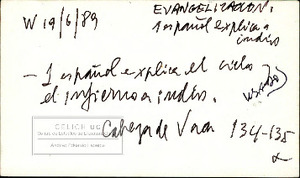 W 19/6/89
EVANGELIZACION.
1 español explica a
indios
— 1 español explica el cielo
el infierno a indios.
Cabeza de Vaca 134-135
CELICH UC